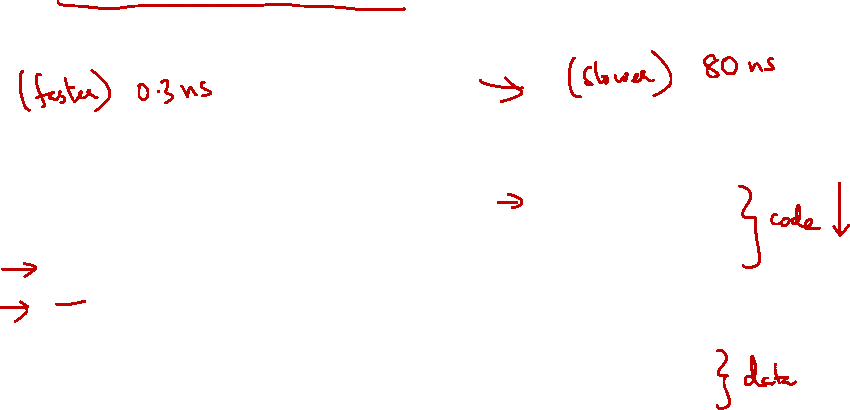 (faster) 0.3 ns
(slower) 80 ns
code
data